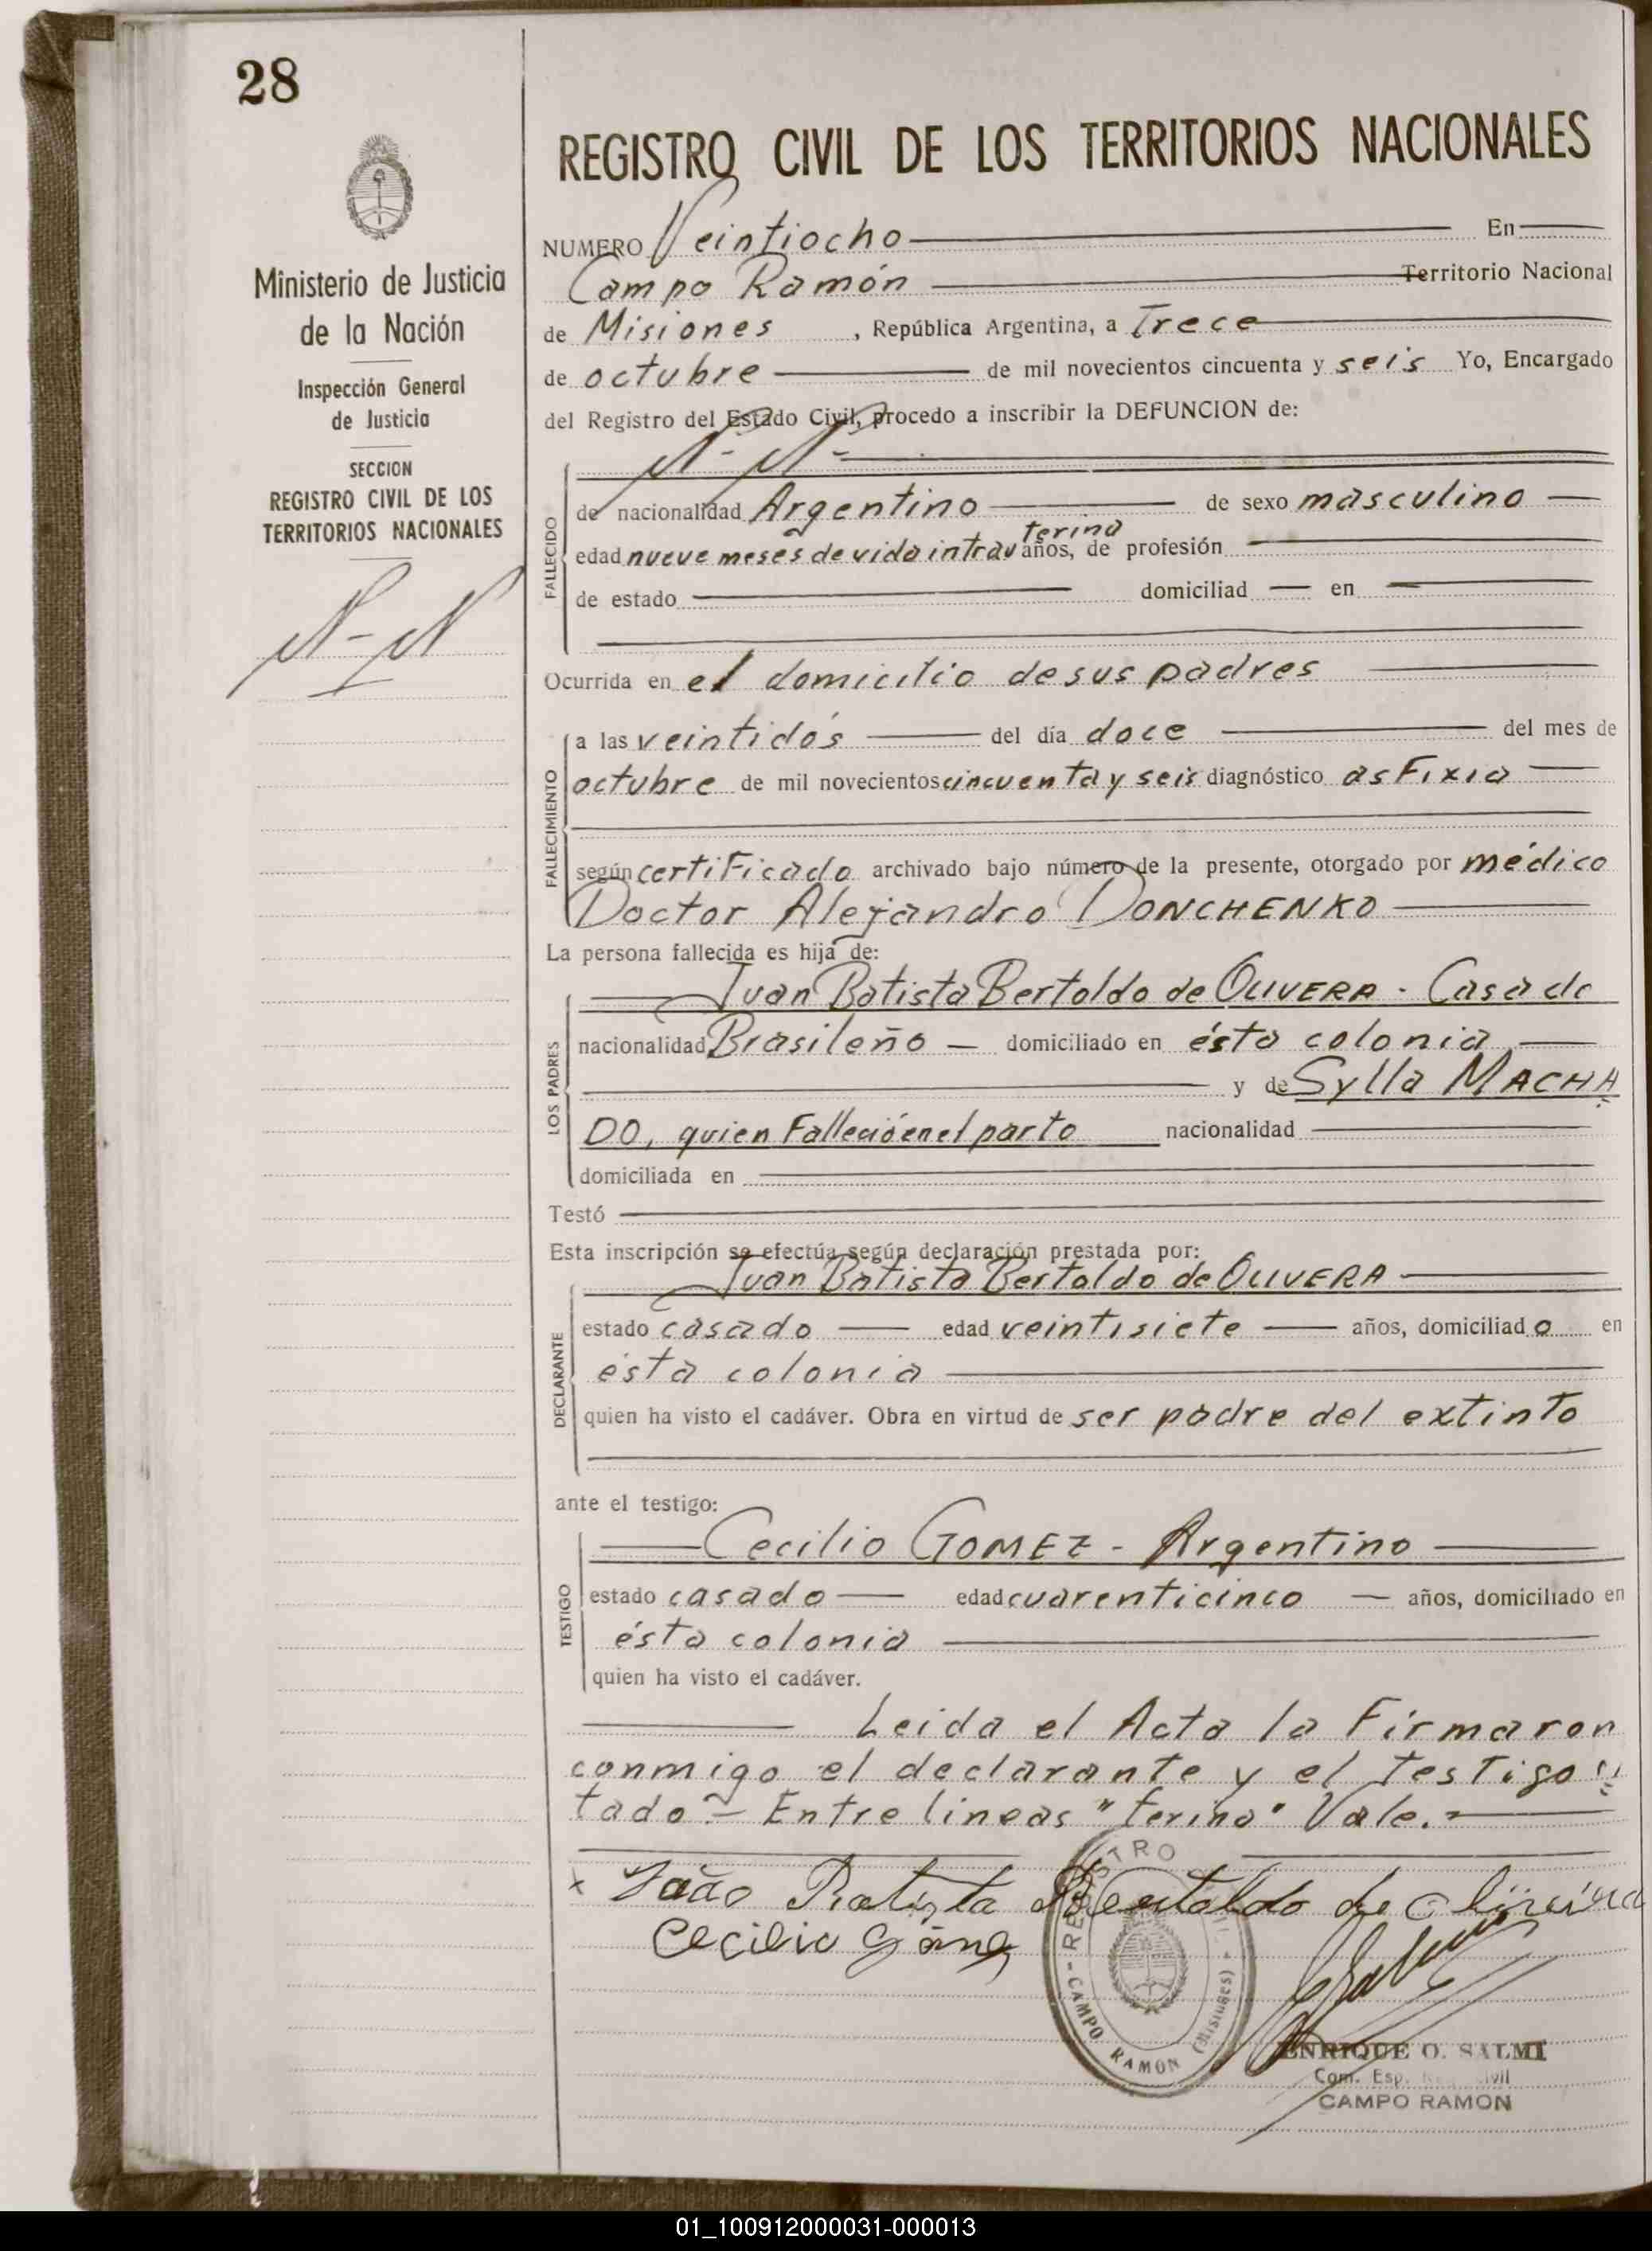 28
Ministerio de Justicia
de la Nación
Inspección General
de Justicia
SECCION
REGISTRO CIVIL DE LOS
TERRITORIOS NACIONALES
N-N
REGISTRO CIVIL DE LOS TERRITORIOS NACIONALES
NUMERO Veintiocho En
Campo Ramón Territorio Nacional
de Misiones, República Argentina, a Trece
de octubre de mil novecientos cincuenta y seis Yo, Encargado
del Registro del Estado Civil, procedo a inscribir la DEFUNCION de:
N-N-
FALLECIDO
de nacionalidad Argentino de sexo masculino
terina
edad nueve meses de vida intrau años, de profesión
de estado domiciliad en
Ocurrida en el domicilio de sus padres
FALLECIMIENTO
a las veintidós del día doce del mes de
octubre de mil novecientos cincuenta y seis diagnóstico asfixia
según certificado archivado bajo número de la presente, otorgado por médico
Doctor Alejandro DONCHENKO
La persona fallecida es hija de:
LOS PADRES
Juan Batista Bertoldo de OLIVERA - Casado
nacionalidad Brasileño domiciliado en ésta colonia
y de Sylla MACHA
DO, quien Falleció en el parto nacionalidad
domiciliada en
Testó
Esta inscripción se efectúa según declaración prestada por:
Juan Batista Bertoldo de OLIVERA
DECLARANTE
estado casado edad veintisiete años, domiciliado en
ésta colonia
quien ha visto el cadáver. Obra en virtud de ser padre del extinto
ante el testigo:
TESTIGO
Cecilio GOMEZ - Argentino
estado casado edad cuarenticinco años, domiciliado en
ésta colonia
quien ha visto el cadáver.
Leida el Acta la Firmaron
conmigo el declarante y el testigo
tado - Entre lineas "terina" Vale.-
x João Batista Bertoldo de Oliveira
Cecilio Gómez
REGISTRO CIVIL - CAMPO RAMON (Misiones) -
ENRIQUE O. SALMI
Com. Esp. Reg. Civil
CAMPO RAMON
01_100912000031-000013